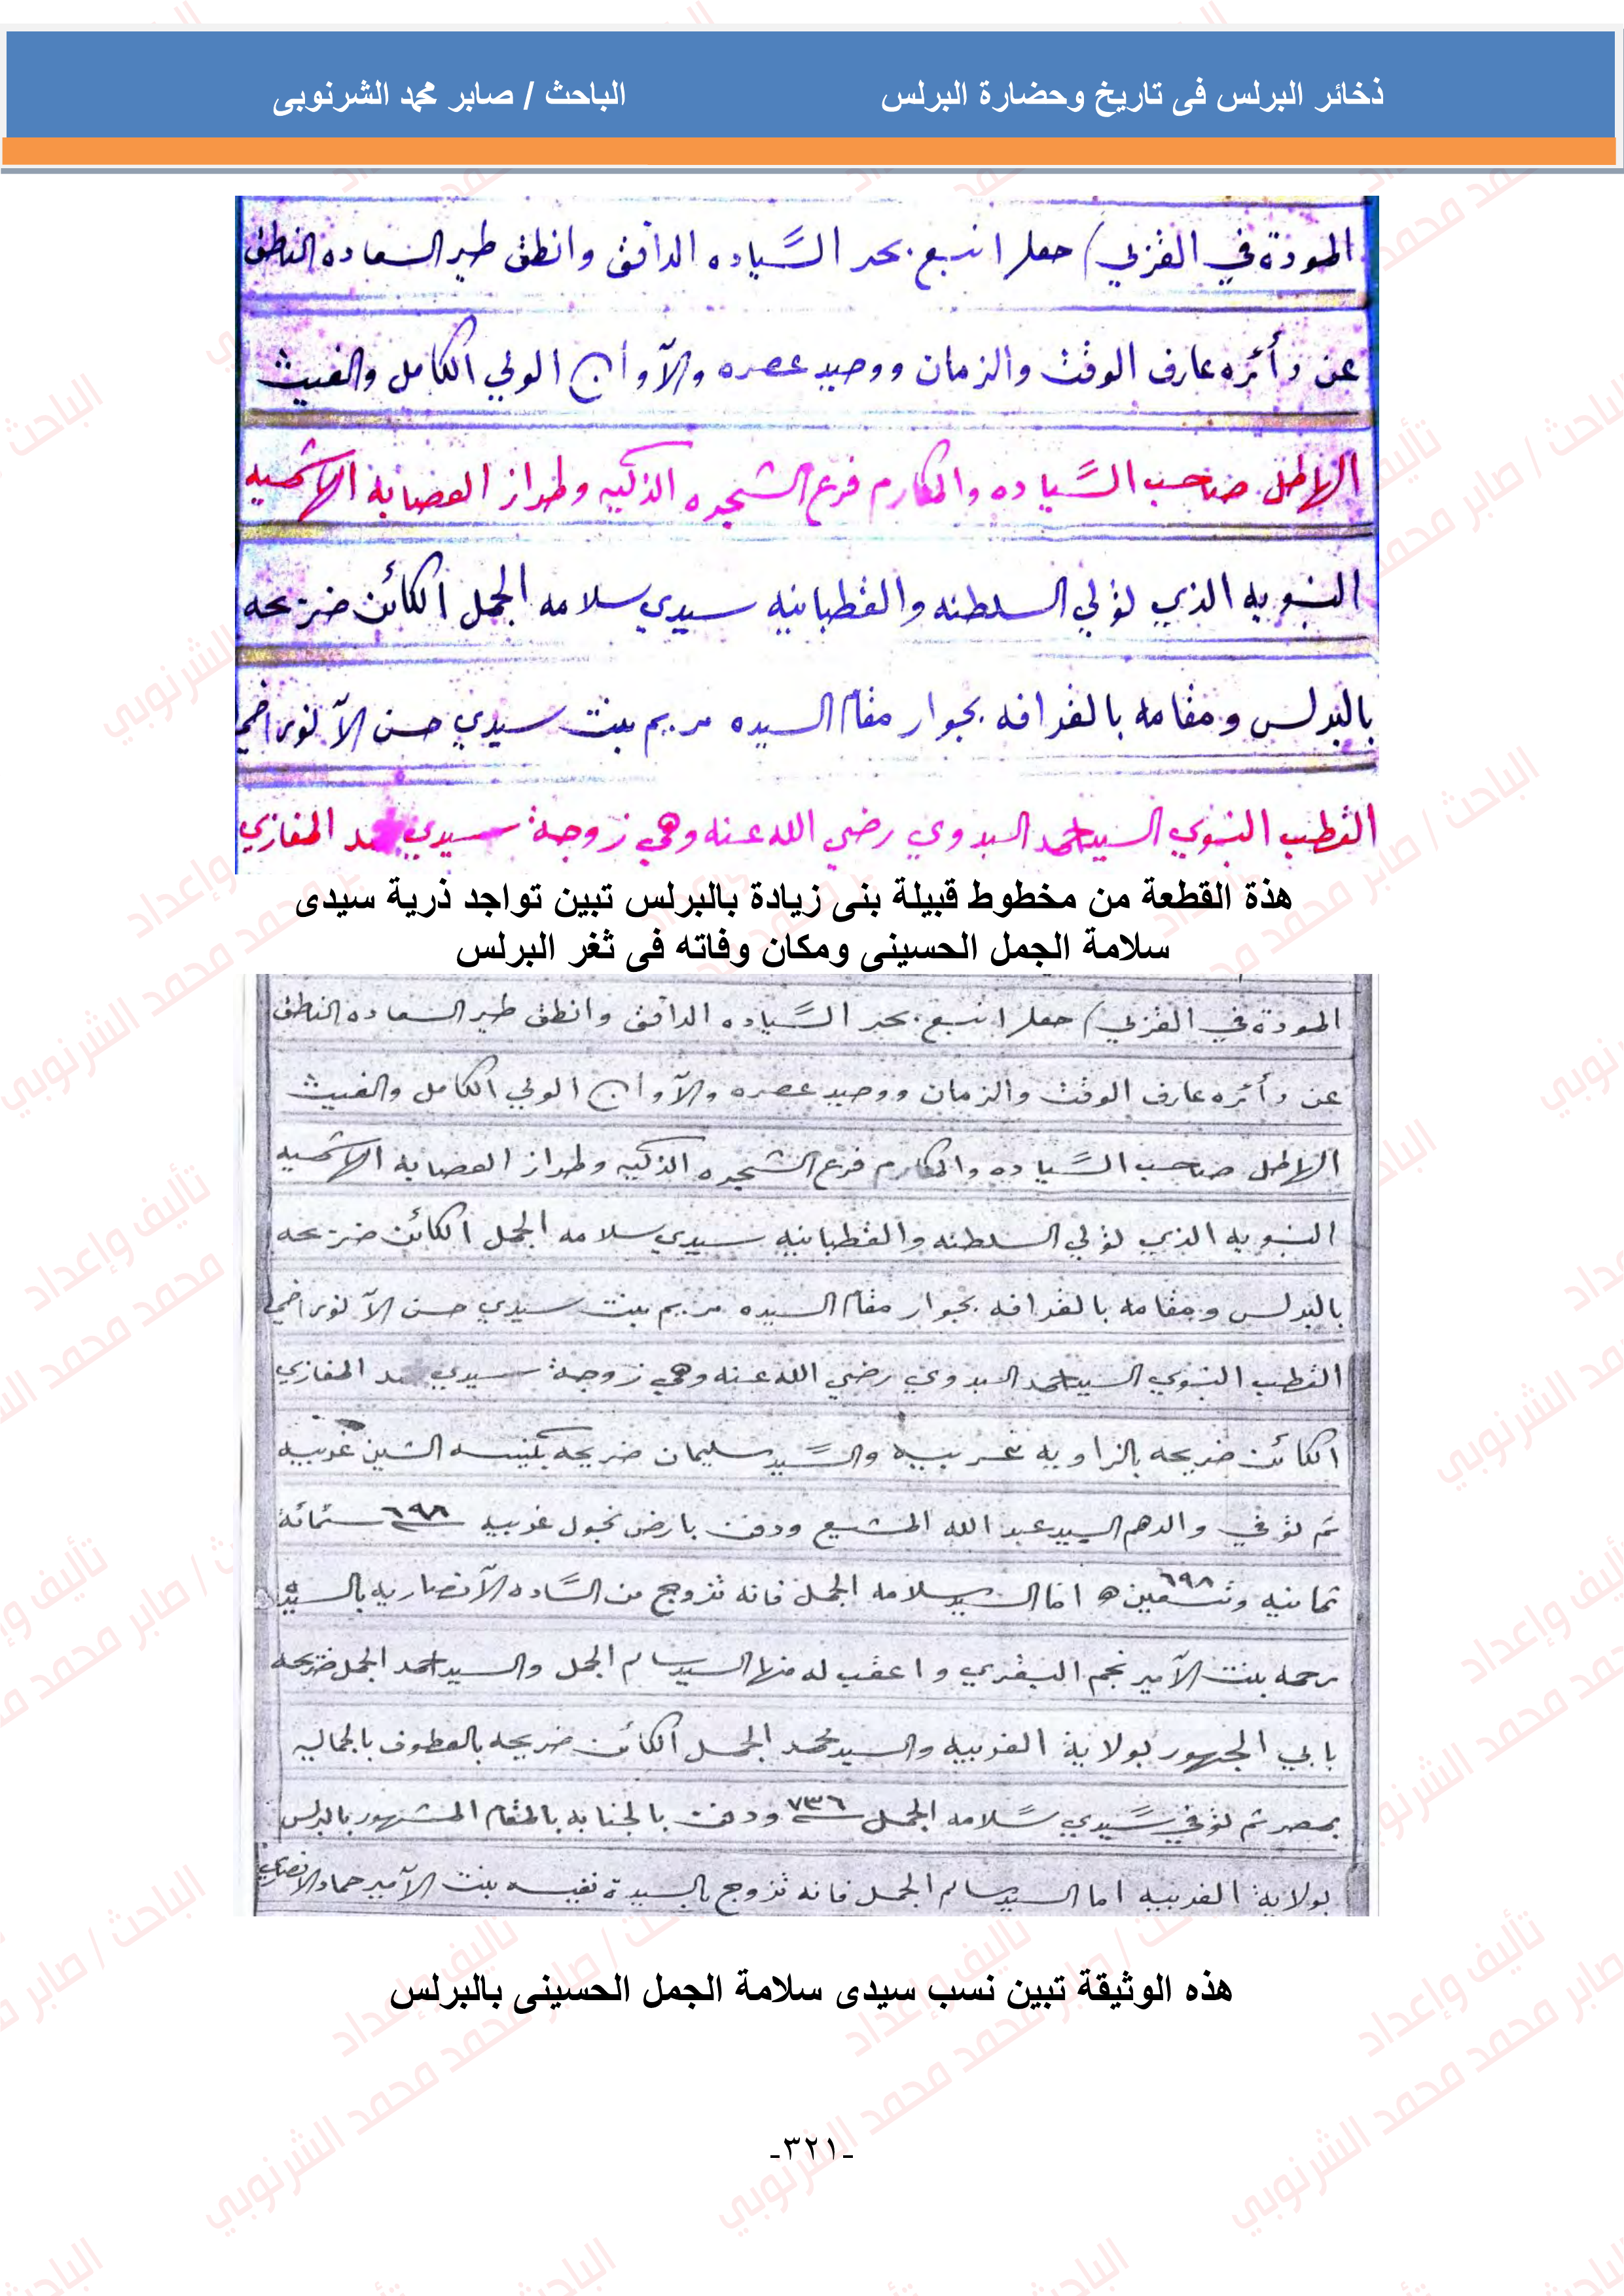 ذخائر البرلس فى تاريخ وحضارة البرلس الباحث / صابر محمد الشرنوبى
المودة في القربي) حقا انبع بحر السَّياده الدافق وانطق طير السعاده الناطق
عن دأئره عارف الوقت والزمان ووحيد عصره والآوأن الولي الكامل والغيث
الهاطل صاحب السَّياده والمكارم فرع الشجره الذكيه وطراز العصابه الهاشميه
النبويه الذي تولي السلطنه والقطبانيه سيدي سلامه الجمل الكائن ضريحه
بالبرلس ومقامه بالقرافه بجوار مقام السيده مريم بنت سيدي حسن الآنور اخي
القطب النبوي السيد احمد البدوي رضي الله عنه وهي زوجة سيدي المغازي
هذة القطعة من مخطوط قبيلة بنى زيادة بالبرلس تبين تواجد ذرية سيدى
سلامة الجمل الحسينى ومكان وفاته فى ثغر البرلس
المودة في القربي) حقا انبع بحر السَّياده الدافق وانطق طير السعاده الناطق
عن دأئره عارف الوقت والزمان ووحيد عصره والآوأن الولي الكامل والغيث
الهاطل صاحب السَّياده والمكارم فرع الشجره الذكيه وطراز العصابه الهاشميه
النبويه الذي تولي السلطنه والقطبانيه سيدي سلامه الجمل الكائن ضريحه
بالبرلس ومقامه بالقرافه بجوار مقام السيده مريم بنت سيدي حسن الآنور اخي
القطب النبوي السيد احمد البدوي رضي الله عنه وهي زوجة سيدي المغازي
الكائن ضريحه بالزاويه غربيه والسَّيد سليمان ضريحه بكنيسه الشين غربيه
ثم توفي والدهم السيد عبد الله ودفن بارض غربيه ٦٩٨ ستمائة
ثمانيه وتسعين ٦٩٨ ه اما السيد سلامه الجمل فانه تزوج من السَّاده الآنصاريه بالسيده
رحمه بنت الآمير نجم واعقب له منها السيد سالم الجمل والسيد احمد الجمل ضريحه
بابي الجهور بولاية الغربيه والسيد محمد الجمل الكائن ضريحه بالعطوف بالجماليه
بمصر ثم توفي سَّيدي سَّلامه الجمل ٧٣٦ ودفن بالمقام المشهور بالبرلس
بولاية الغربيه اما السيد سالم الجمل فانه تزوج بالسيدة نفيسه بنت الآمير حماد الانصاري
هذه الوثيقة تبين نسب سيدى سلامة الجمل الحسينى بالبرلس
-٣٢١-
تأليف وإعداد
الباحث / صابر محمد محمد الشرنوبي